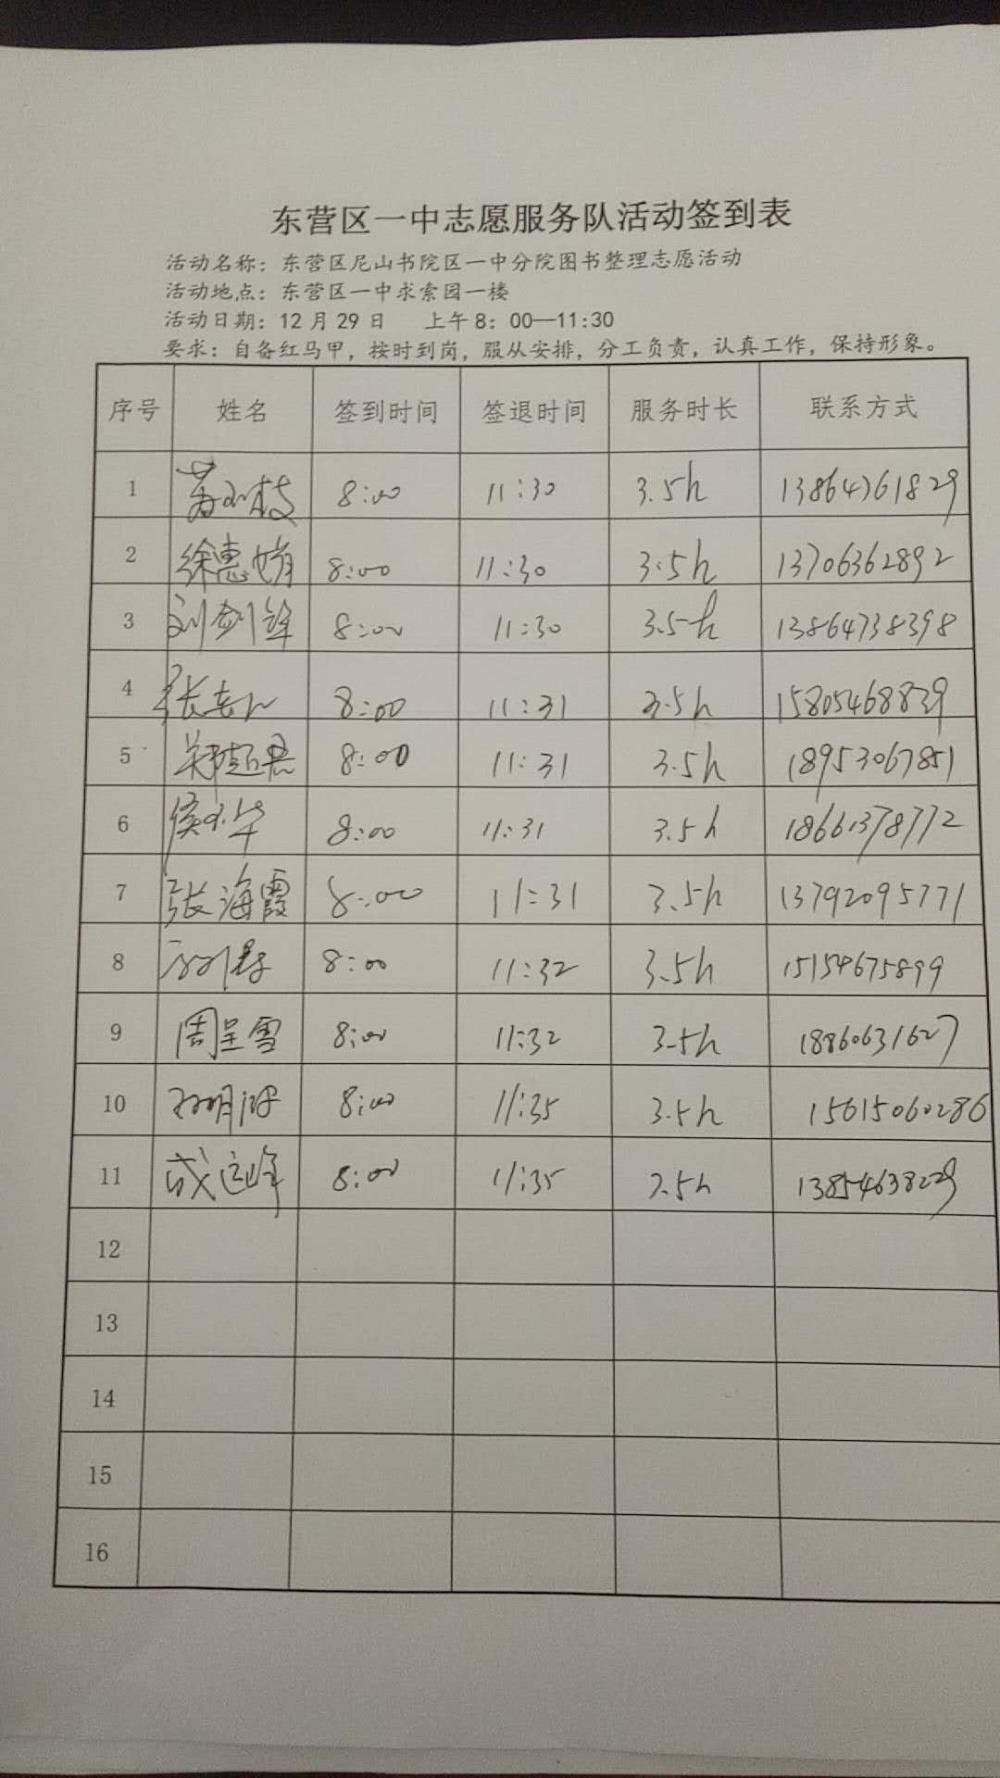 东营区一中志愿服务队活动签到表
活动名称：东营区尼山书院区一中分院图书整理志愿活动
活动地点：东营区一中求索园一楼
活动日期：12月29日 上午8：00—11:30
要求：自备红马甲，按时到岗，服从安排，分工负责，认真工作，保持形象。
序号 姓名 签到时间 签退时间 服务时长 联系方式
1 8:00 11:30 3.5h 13864761829
2 徐惠娟 8:00 11:30 3.5h 13706362892
3 刘剑锋 8:00 11:30 3.5h 13864738398
4 8:00 11:31 3.5h 15805468839
5 8:00 11:31 3.5h 18953067851
6 侯小华 8:00 11:31 3.5h 18661378772
7 张海霞 8:00 11:31 3.5h 13792095771
8 8:00 11:32 3.5h 15154675899
9 周呈雪 8:00 11:32 3.5h 18860631627
10 8:00 11:35 3.5h 15615060286
11 成远峰 8:00 11:35 3.5h 13854638229
12
13
14
15
16